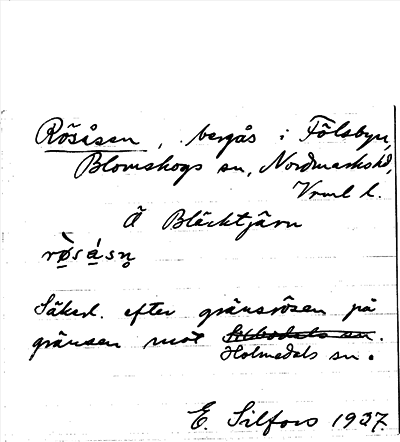 Rösåsen, bergås i Fölsbyn,
Blomskogs sn, Nordmarks hd,
Vrml l.
Å Bläcktjärn
rø̀sásn̥
Säkerl. efter gränsrösen på
gränsen mot Silbodals sn.
Holmedals sn.
E. Silfors 1937.